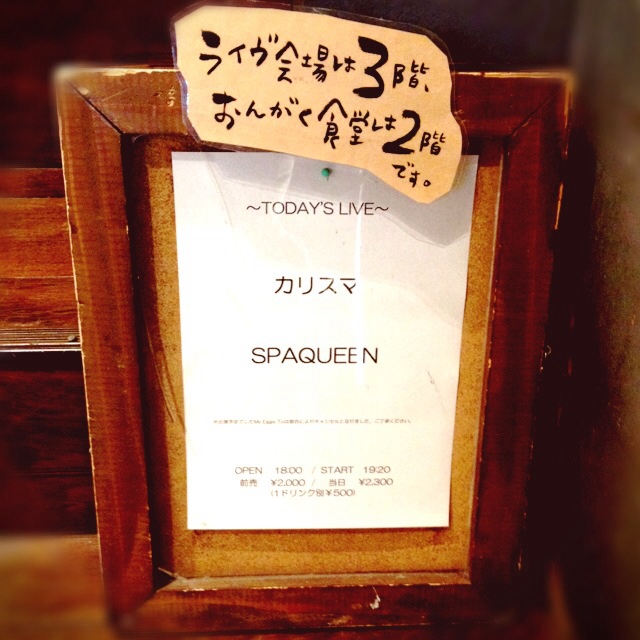 ライヴ会場は3階、
おんがく食堂は2階
です。
～TODAY'S LIVE～
カリスマ
SPAQUEEN
OPEN 18:00 / START 19:20
前売 ¥2,000 / 当日 ¥2,300
(1ドリンク別¥500)